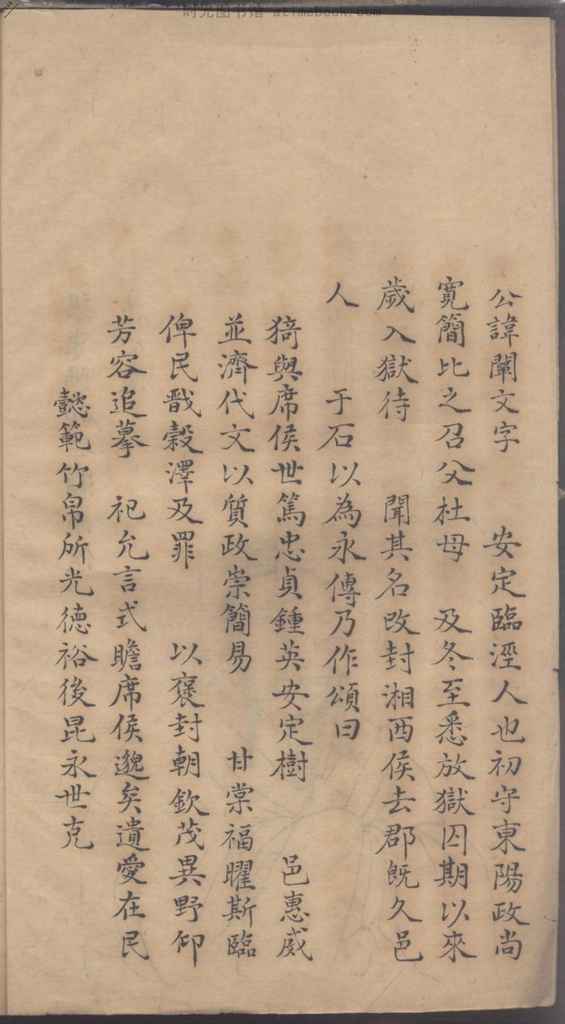 公諱闡文字　　安定臨涇人也初守東陽政尚
寬簡比之召父杜母　及冬至悉放獄囚期以來
歲入獄待　　聞其名改封湘西侯去郡旣久邑
人　　于石以為永傳乃作頌曰
猗與席侯世篤忠貞鍾英安定樹　　邑惠威
並濟代文以質政崇簡易　　甘棠福曜斯臨
俾民戩穀澤及罪　　以褒封朝欽茂異野仰
芳容追摹　祀允言式瞻席侯邈矣遺愛在民
懿範竹帛所光德裕後昆永世克